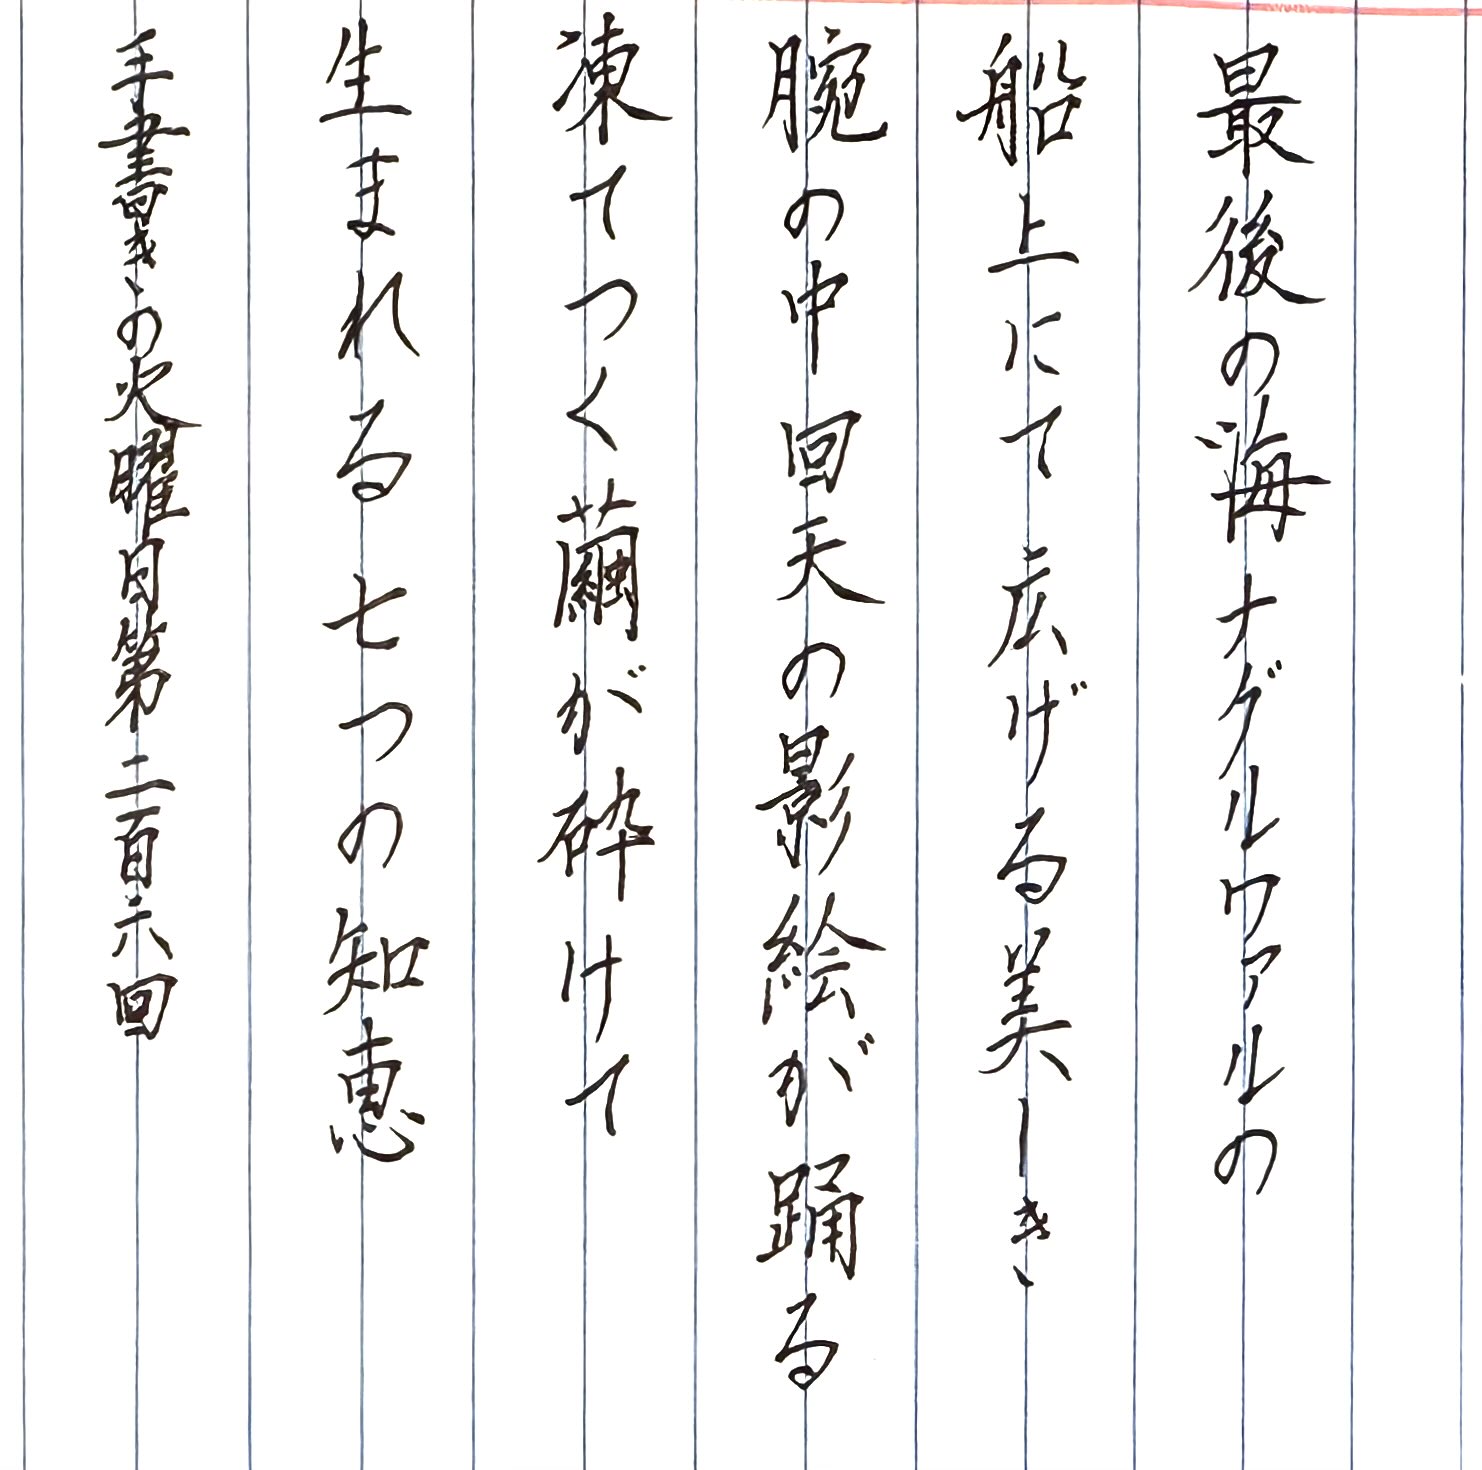 最後の海ナグルワァルの
船上にて広げる美しき
腕の中回天の影絵が踊る
凍てつく繭が砕けて
生まれる七つの知恵
手書きの火曜日第二百六回